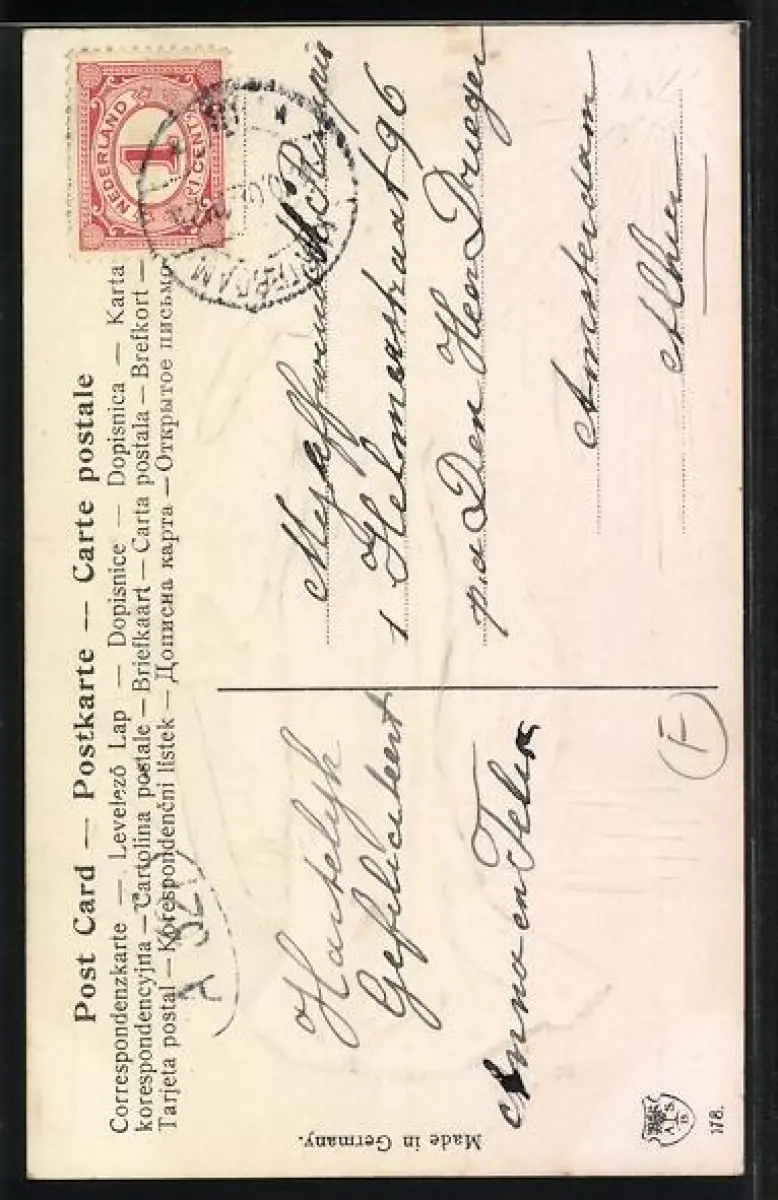 Post Card — Postkarte — Carte postale
Correspondenzkarte — Levelező Lap — Dopisnice — Dopisnica — Karta
korespondencyjna — Cartolina postale — Briefkaart — Carta postala — Brefkort —
Tarjeta postal — Korespondenční listek — Дописна карта — Открытое письмо
NEDERLAND
1
CENT
Hartelijk
Gefeliciteert
Anna en
Mejuffrouw M
1 Helmerstraat 96
p.a Den Heer
Amsterdam
Alhier
F
Made in Germany.
178.